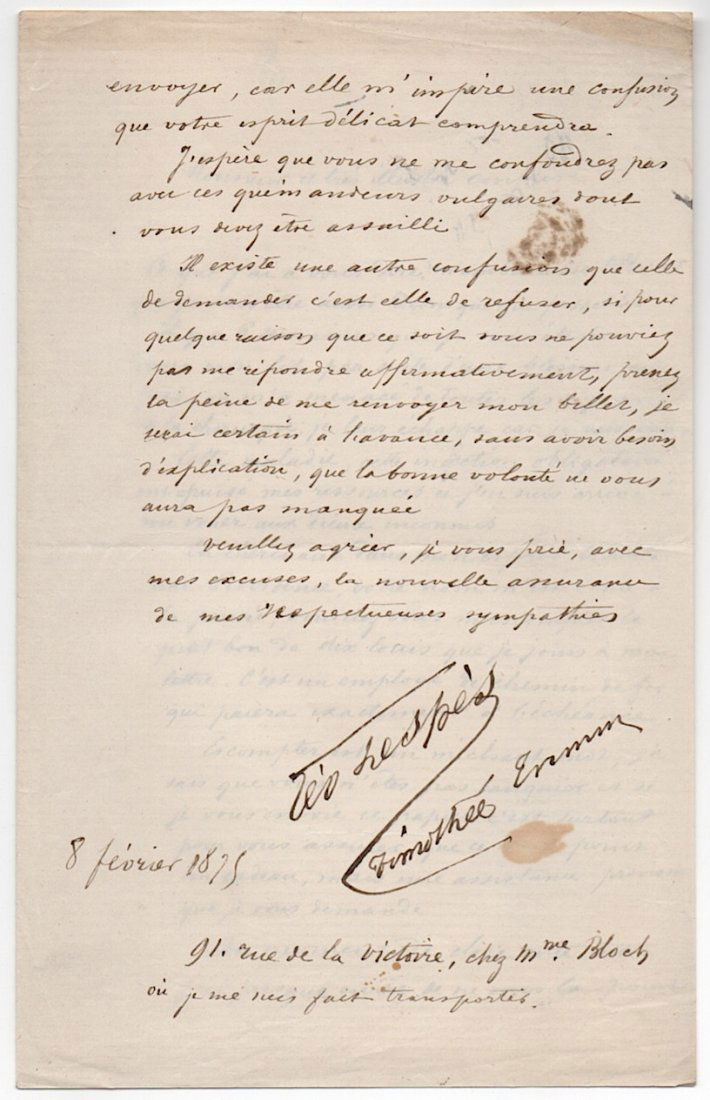 envoyer, car elle m'inspire une confusion
que votre esprit délicat comprendra.
J'espère que vous ne me confondrez pas
avec ces quémandeurs vulgaires dont
vous devez être assailli
Il existe une autre confusion que celle
de demander c'est celle de refuser, si pour
quelque raison que ce soit vous ne pouviez
pas me répondre affirmativement, prenez
la peine de me renvoyer mon billet, je
serai certain à l'avance, sans avoir besoin
d'explication, que la bonne volonté ne vous
aura pas manquée
Veuillez agréer, je vous prie, avec
mes excuses, la nouvelle assurance
de mes respectueuses sympathies
Léo Lespès
Timothée Trimm
8 février 1875
91. rue de la Victoire, chez Mme. Bloch
où je me suis fait transporter.